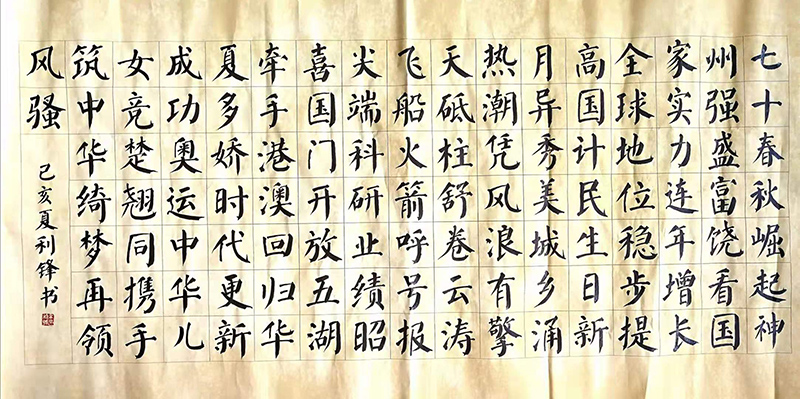 七十春秋崛起神
州强盛富饶看国
家实力连年增长
全球地位稳步提
高国计民生日新
月异秀美城乡涌
热潮凭风浪有擎
天砥柱舒卷云涛
飞船火箭呼号报
尖端科研业绩昭
喜国门开放五湖
牵手港澳回归华
夏多娇时代更新
成功奥运中华儿
女竞楚翘同携手
筑中华绮梦再领
风骚
己亥夏利锋书